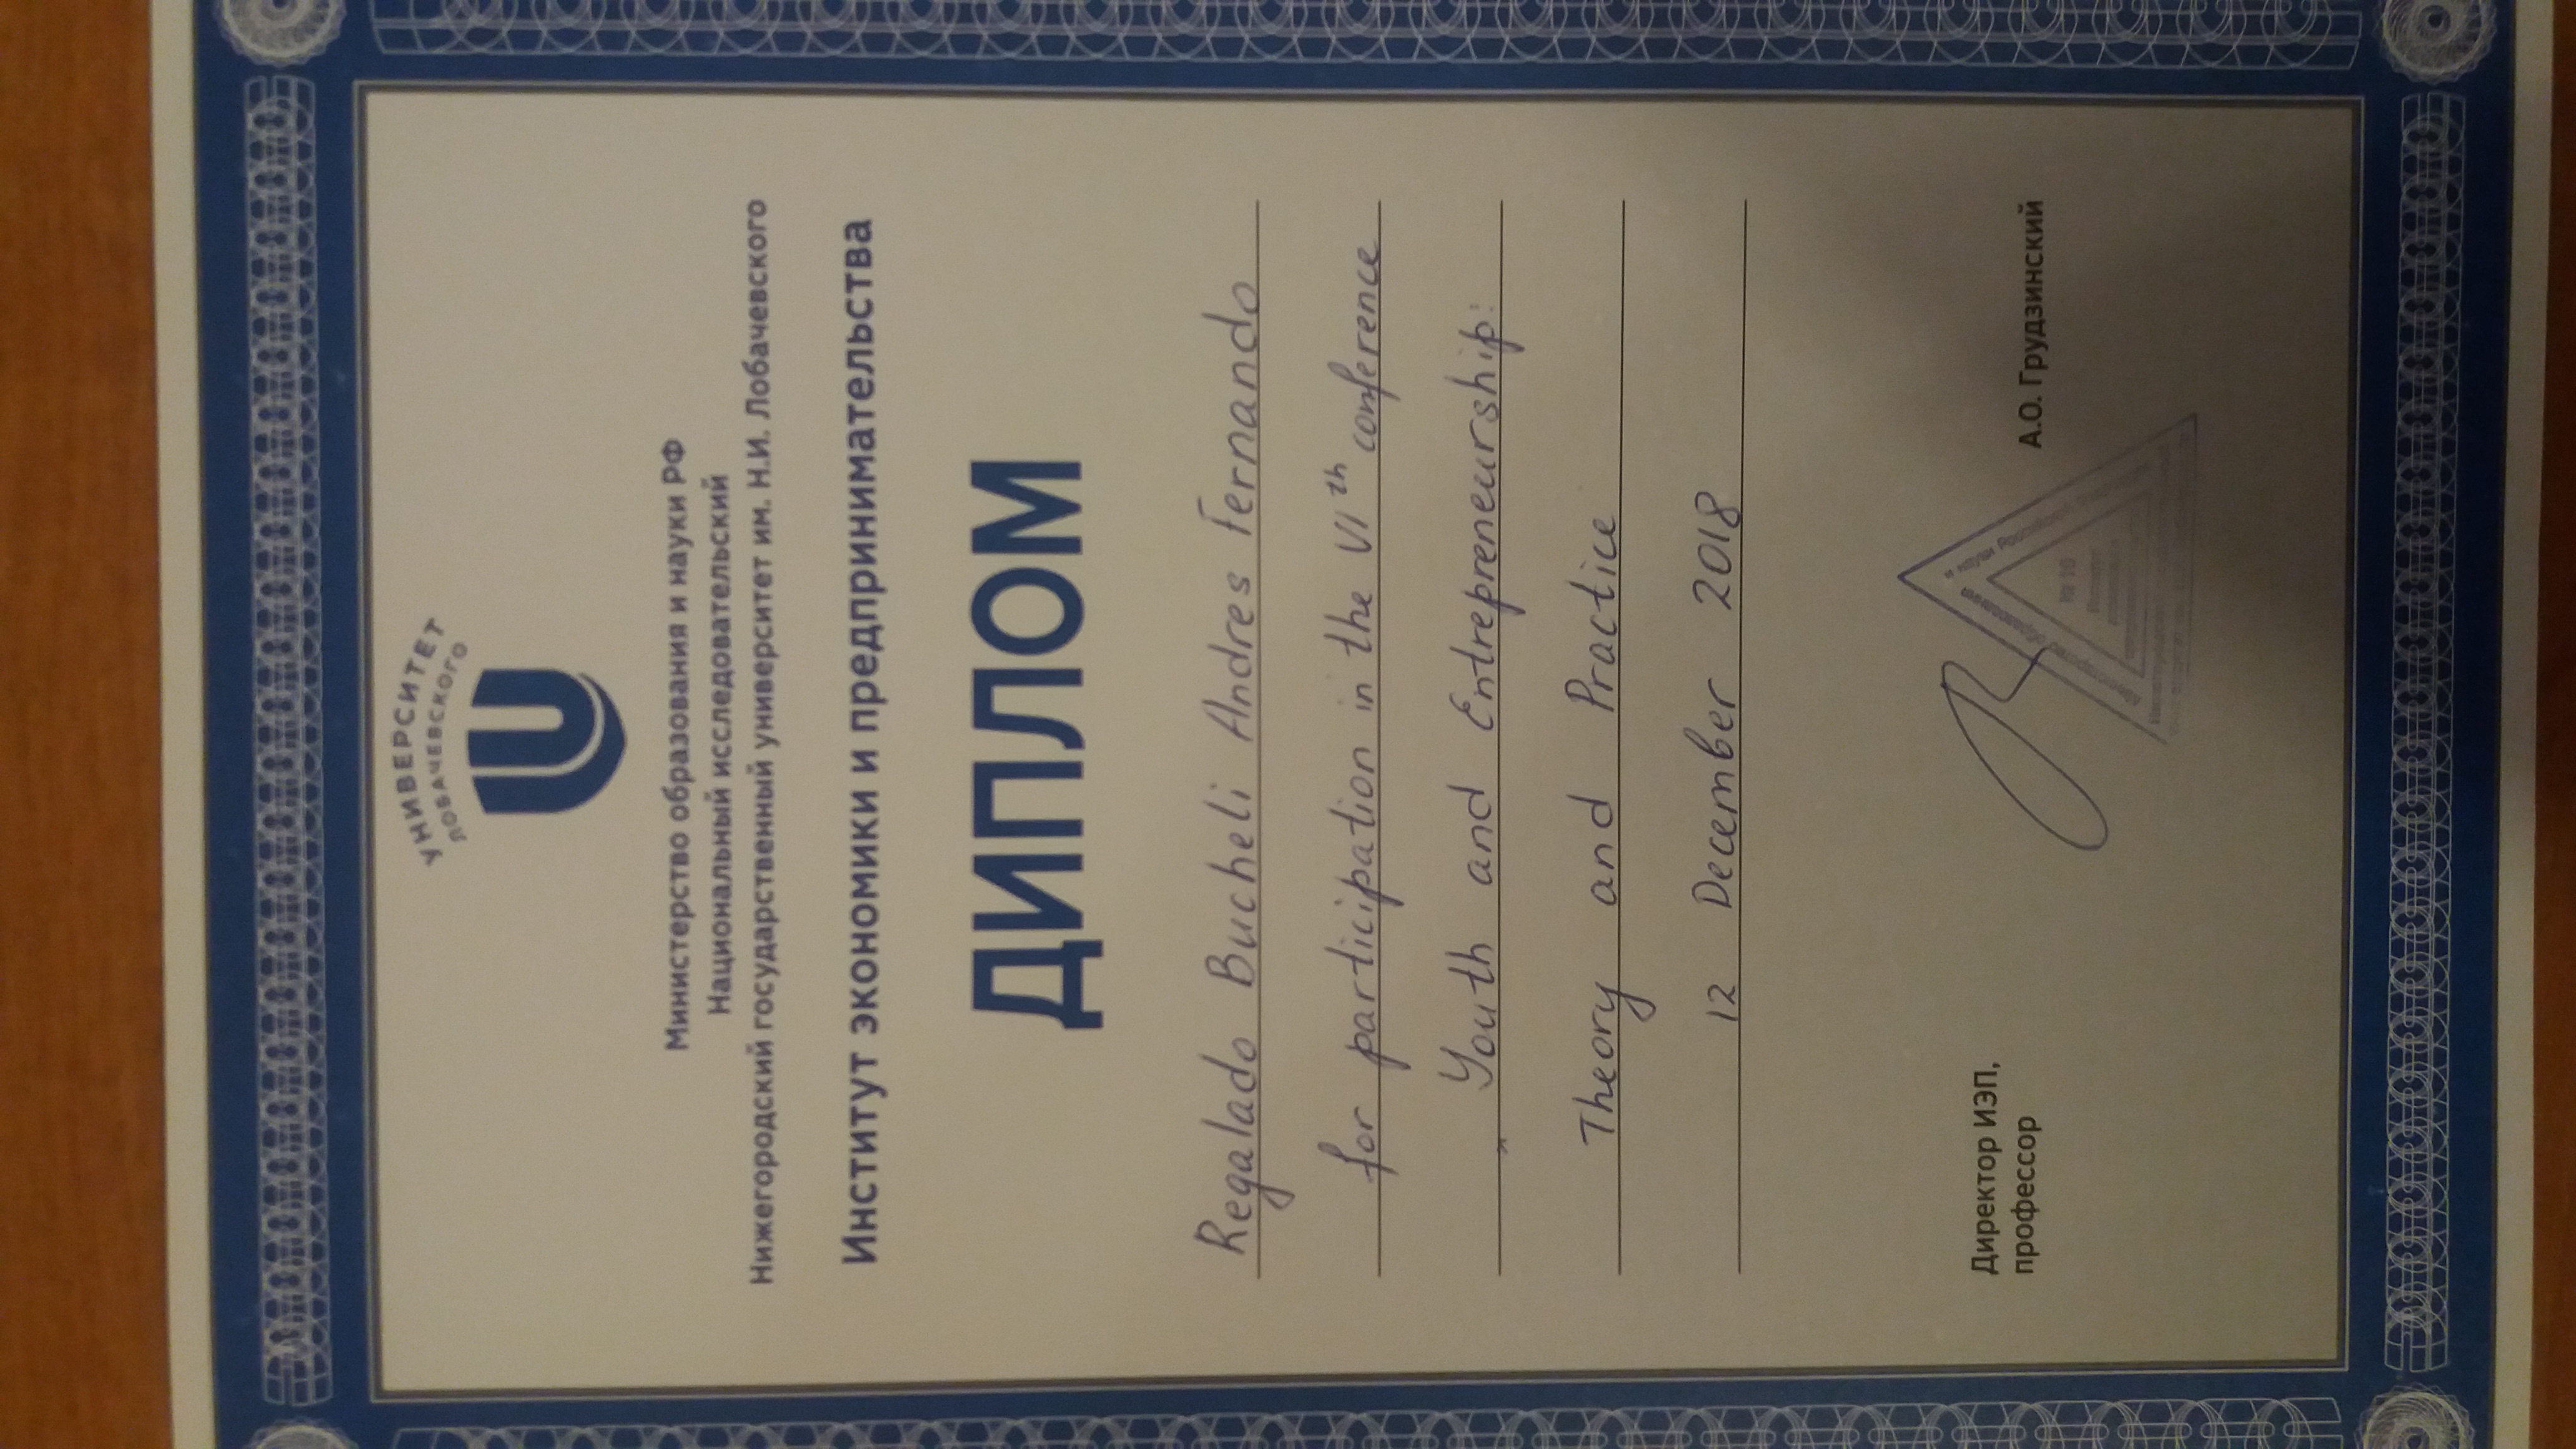 УНИВЕРСИТЕТ
ЛОБАЧЕВСКОГО
Министерство образования и науки РФ
Национальный исследовательский
Нижегородский государственный университет им. Н.И. Лобачевского
Институт экономики и предпринимательства
ДИПЛОМ
Regalado Bucheli Andres Fernando
for participation in the VIth conference
" Youth and Entrepreneurship:
Theory and Practice
12 December 2018
Директор ИЭП,
профессор
А.О. Грудзинский
Министерство образования